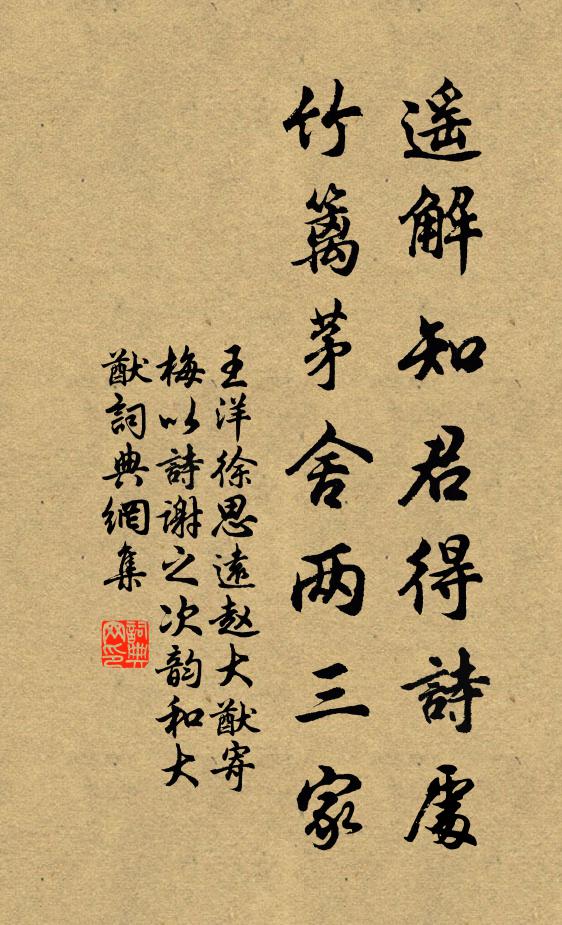 遥解知君得詩處
竹籬茅舍两三家
王洋徐思遠趙大猷寄
梅以詩謝之次韵和大
猷詞典網集
詞典网印